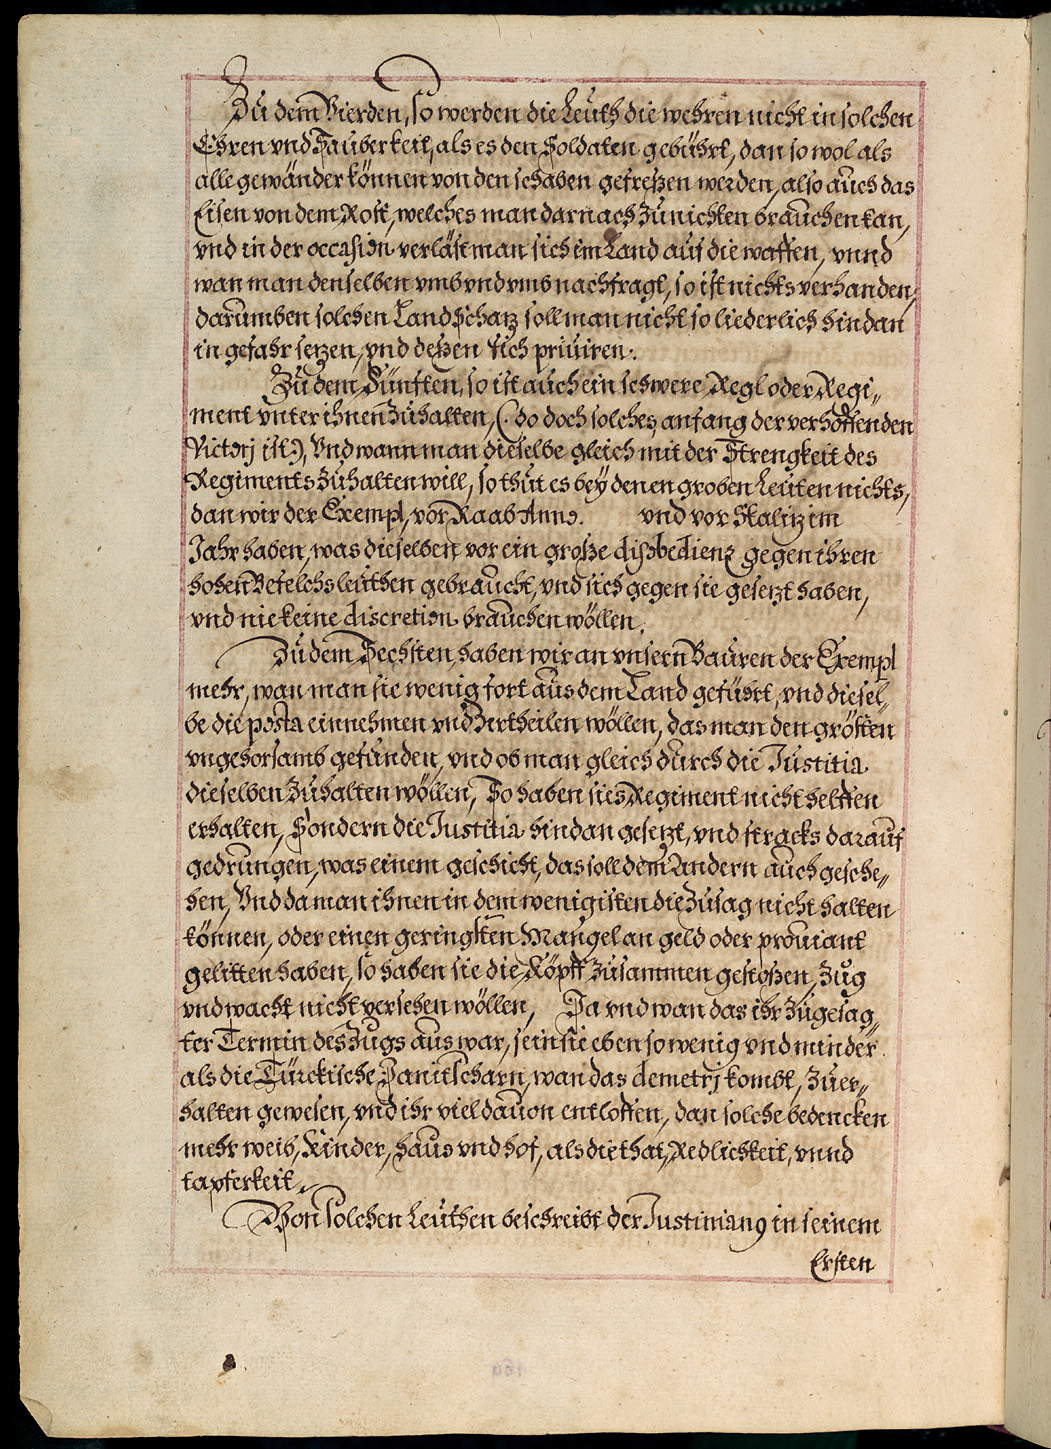 Zu dem Vierden, so werden die Leuth die wehren nicht in solchen
Ehren vnd Sauberkeit, als es den Soldaten gebührt, dan so wol als
alle gewänder können von den schaben gefreßen werden, also auch das
Eisen von dem Rost, welches man darnach zu nichten brauchen kan,
vnd in der occasion verläst man sich im Land auf die waffen, vnnd
wan man denselben vmb vnd vmb nachfragt, so ist nichts verhanden,
darumben solchen Land Schatz soll man nicht so liederlich hindan
in gefahr setzen, vnd deßen sich priuiren.
Zu dem Fünften, so ist auch ein schwere Regl oder Regi„
ment vnter ihnen zuhalten, (: do doch solches anfang der verhoffenden
Victorj ist:), Vnd wann man dieselbe gleich mit der Strengkeit des
Regiments zuhalten will, so thut es bey denen groben Leuten nichts,
dan wir der Exempl, vor Raab Anno. vnd vor Skalitz im
Jahr haben, was dieselben vor ein große disobedienz gegen ihren
hohen Befelchsleuthen gebraucht, vnd sich gegen sie gesetzt haben,
vnd nie keine discretion brauchen wöllen.
Zu dem Sechsten, haben wir an vnsern Bauren der Exempl
mehr, wan man sie wenig fort aus dem Land geführt, vnd diesel„
be die posta einnehmen vnd zertheilen wöllen, das man den grösten
vngehorsamb gefunden, vnd ob man gleich durch die Justitia
dieselben zuhalten wöllen, So haben sie's Regiment nicht helffen
erhalten, Sondern die Justitia hindan gesetzt, vnd stracks darauf
gedrungen, was einem geschicht, das soll dem Andern auch gesche„
hen, Vnd da man ihnen in dem wenigisten die Zusag nicht halten
können, oder einen geringsten Mangel an geld oder prouiant
gelitten haben, so haben sie die Köpff zusammen gestoßen, Zug
vnd wacht nicht versehen wöllen, Ja vnd wan das ihr zugesag„
ter Termin des Zugs aus war, sein sie eben so wenig vnd minder
als die Türckische Janitscharn, wan das demetrj kombt, zu er„
halten gewesen, vnd ihr viel dauon entloffen, dan solche bedencken
mehr weib, Kinder, haus vnd hof, als die that, Redlichkeit, vnnd
tapferkeit.
Von solchen Leuthen beschreibt der Justinianus in seinem
Ersten